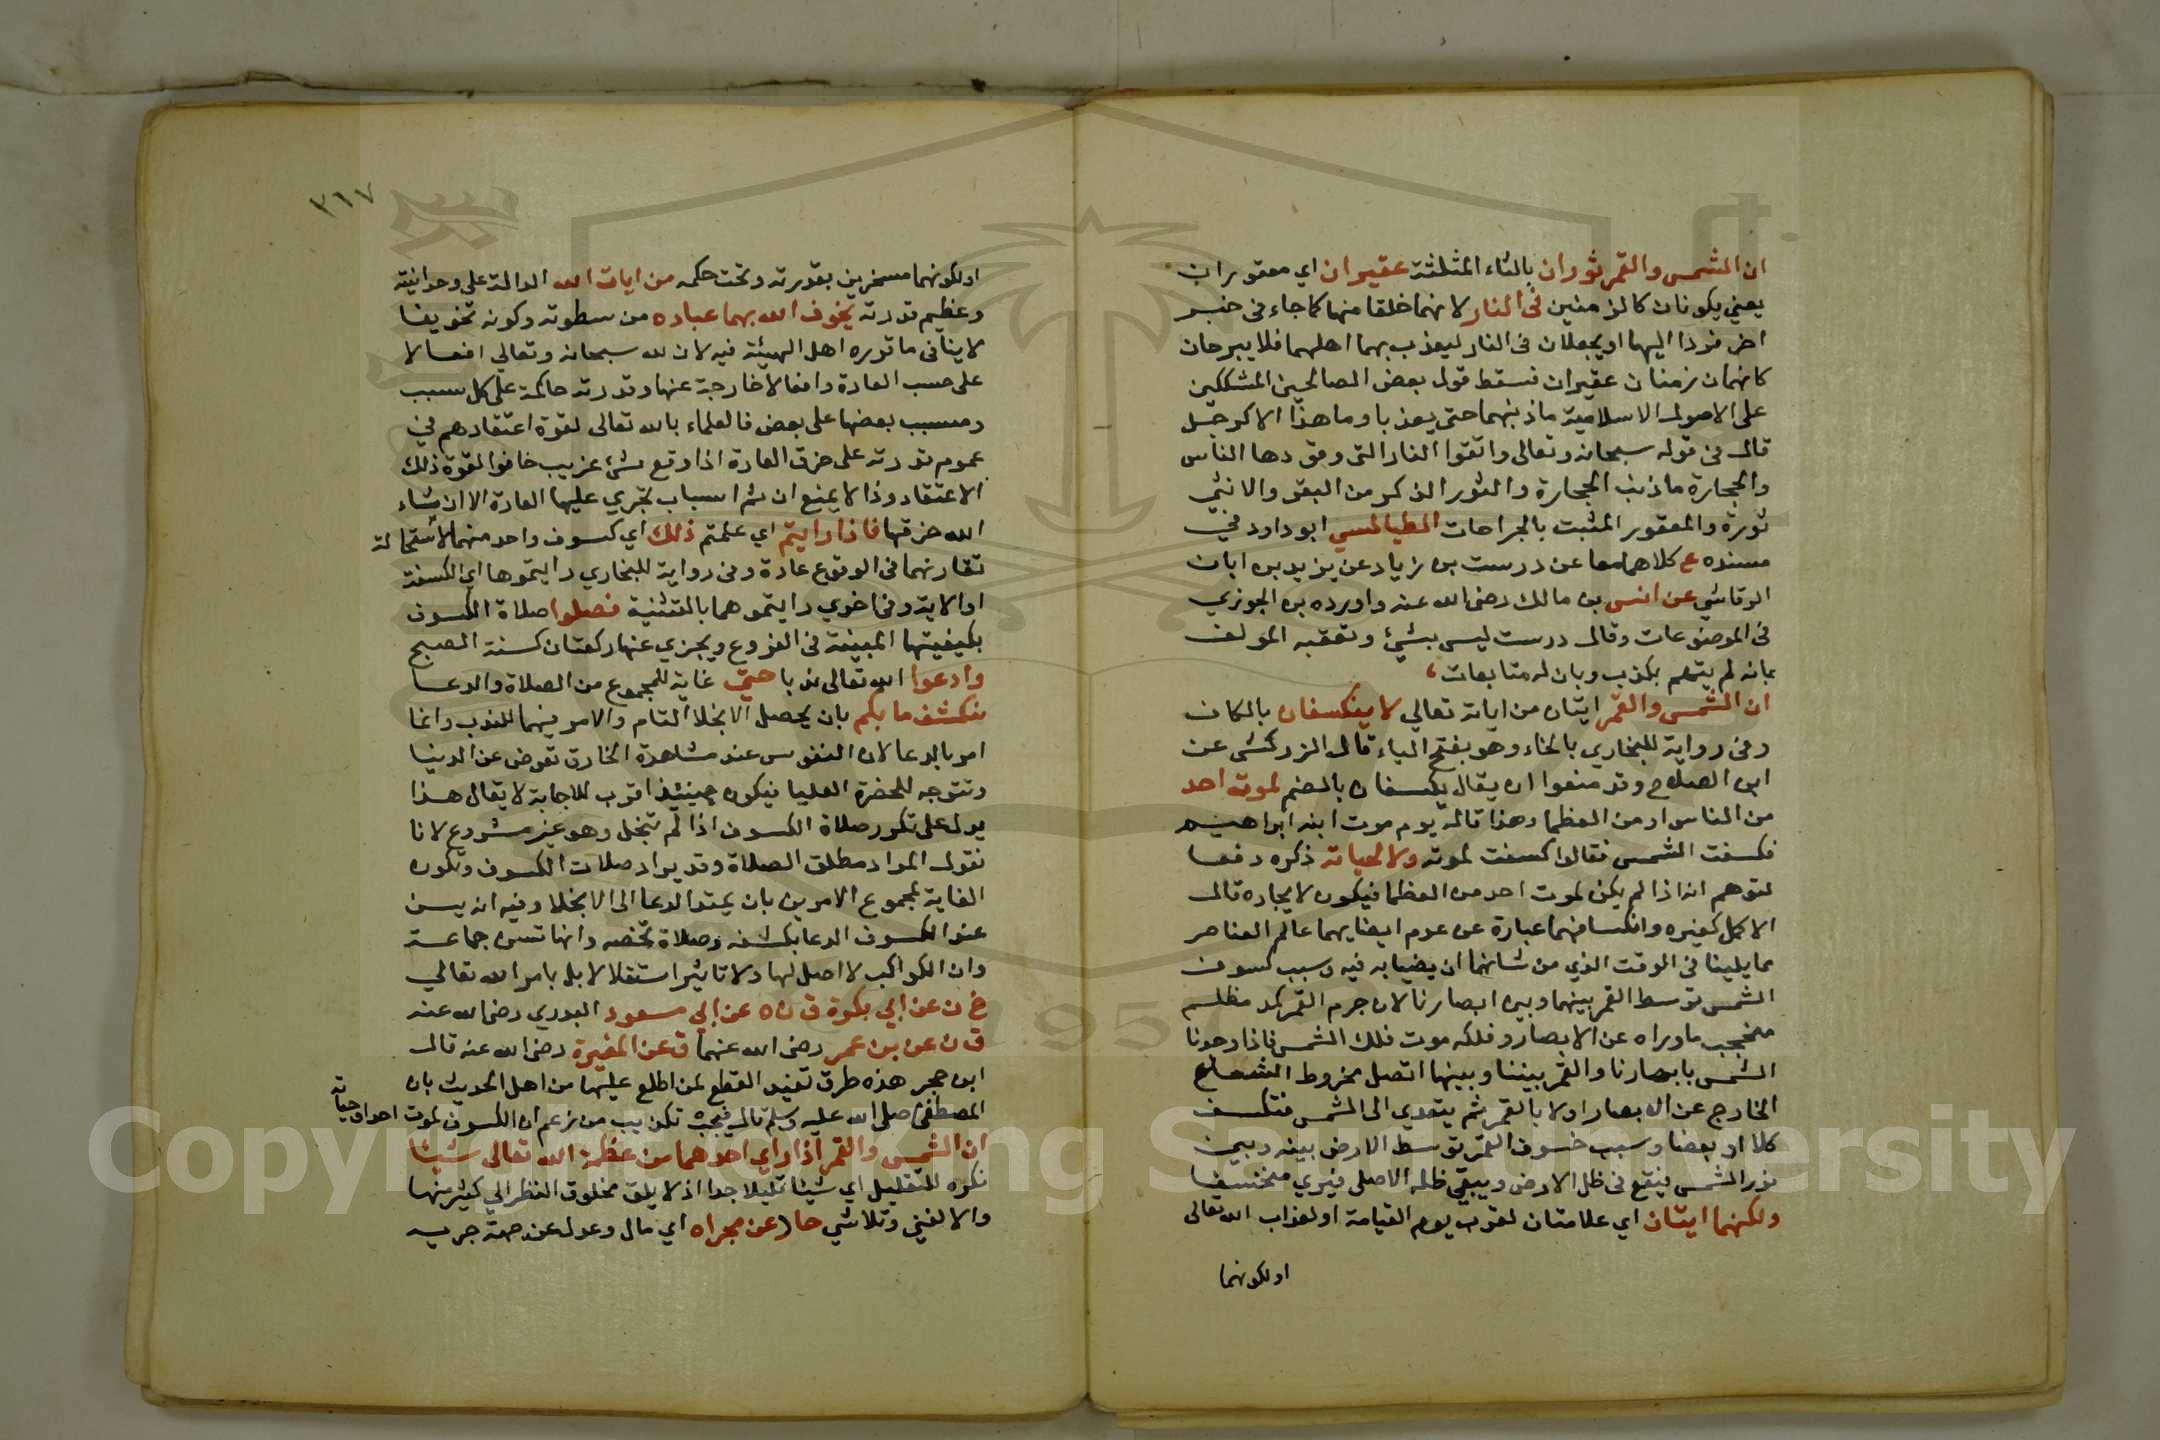 ان الشمس والقمر ثوران بالثاء المثلثة عقيران اي معقوران
يعني يكونان كالزمنين في النار لانهما خلقا منها كما جاء في خبر
اخر فردا اليها او يجعلان في النار ليعذب بهما اهلهما فلا يبرحان
كانهما زمنان عقيران فسقط قول بعض الصالحين المشككين
على الاصول الاسلامية ما ذنبهما حتى يعذبا وما هذا الا كرجل
قال في قوله سبحانه وتعالى واتقوا النار التي وقودها الناس
والحجارة ما ذنب الحجارة والثور الذكر من البقر والانثى
ثورة والمعقور المثبت بالجراحات الطيالسي ابو داود في
مسنده ع كلاهما معا عن درست بن زياد عن يزيد بن ابان
الرقاشي عن انس بن مالك رضي الله عنه واورده بن الجوزي
في الموضوعات وقال درست ليس بشئ وتعقبه المولف
بانه لم يتهم بكذب وبان له متابعات
ان الشمس والقمر ايتان من ايات تعالي لا ينكسفان بالكاف
وفي رواية للبخاري بالخاء وهو بفتح الياء قال الزركشي عن
ابن الصلاح وقد منعوا ان يقال يكسفان بالضم لموت احد
من الناس او من العظما وهذا قاله يوم موت ابنه ابراهيم
فكسفت الشمس فقالوا كسفت لموته ولا لحياته ذكره دفعا
لتوهم انه اذا لم يكن لموت احد من العظما فيكون لايجاده قال
الاكمل كغيره وانكسافهما عبارة عن عدم اضايهما عالم العناصر
مما يلينا في الوقت الذي من شانهما ان يضيا به فيه وسبب كسوف
الشمس توسط القمر بينهما وبين ابصارنا لان جرم القمر كمد مظلم
فتحجب ما وراه عن الابصار وفلكه موت فلك الشمس فاذا وحدنا
الشمس بابصارنا والقمر بيننا وبينها اتصل مخروط الشعاع
الخارج عن الابصار اولا بالقمر ثم يتعدي الى الشمس فتكسف
كلا او بعضا وسبب خسوف القمر توسط الارض بينه وبين
نور الشمس فيقع في ظل الارض ويبقى ظله الاصلي فيري منخسفا
ولكنهما ايتان اي علامتان لقرب يوم القيامة او لعذاب الله تعالى
او لكونهما
٣١٧
او لكونهما مسخرين بقدرته وتحت حكمه من ايات الله الدالة على وحدانيته
وعظيم قدرته يخوف الله بهما عباده من سطوته وكونه تخويفا
لا ينافي ما قرره اهل الهيئة فيه لان لله سبحانه وتعالي افعالا
على حسب العادة وافعالا خارجة عنها وقدرته حاكمة على كل سبب
ومسبب بعضها على بعض فالعلماء بالله تعالى لقوة اعتقادهم في
عموم قدرته على خرق العادة اذا وقع شئ غريب خافوا لقوة ذلك
الاعتقاد وذا لا يمنع ان ثم اسباب تجري عليها العادة الا ان شاء
الله خرقها فاذا رايتم اي علمتم ذلك اي كسوف واحد منهما لاستحالة
تقارنهما في الوقوع عادة وفي رواية للبخاري رايتموها اي الكسفة
او الاية وفي اخري رايتموهما بالتثنية فصلوا صلاة الكسوف
بكيفيتها المبينة في الفروع ويجزي عنها ركعتان كسنة الصبح
وادعوا الله تعالى ندبا حتى غاية للمجموع من الصلاة والدعا
ينكشف ما بكم بان يحصل الانجلا التام والامر فيهما للندب وانما
امر بالدعا لان النفوس عند مشاهدة الخارق تعرض عن الدنيا
وتتوجه للحضرة العليا فيكون حينئذ اقرب للاجابة لا يقال هذا
يدل على تكرر صلاة الكسوف اذا لم تنجل وهو غير مشروع لانا
نقول المراد مطلق الصلاة وقد يراد صلات الكسوف وتكون
الغاية لمجموع الامرين بان يمتد الدعا الى الانجلا وفيه انه يسن
عند الكسوف الدعا بكشفه وصلاة تخصه وانها تسن جماعة
وان الكواكب لا اصل لها ولا تاثير استقلالا بل بامر الله تعالي
خ ن عن ابي بكرة ق ن ه عن ابي مسعود البدري رضي الله عنه
ق ن عن بن عمر رضي الله عنهما ق عن المغيرة رضي الله عنه قال
ابن حجر هذه طرق تفيد القطع لمن اطلع عليها من اهل الحديث بان
المصطفى صلى الله عليه وسلم قاله فيجب تكذيب من زعم ان الكسوف لموت احد او حياة
ان الشمس والقمر اذا راي احدهما من عظمة الله تعالى شيئا
نكره للتقليل اي شيئا قليلا جدا اذ لا يليق مخلوق النظر الي كثير منها
والا لفني وتلاشي حاد عن مجراه اي مال وعدل عن جهة جريه